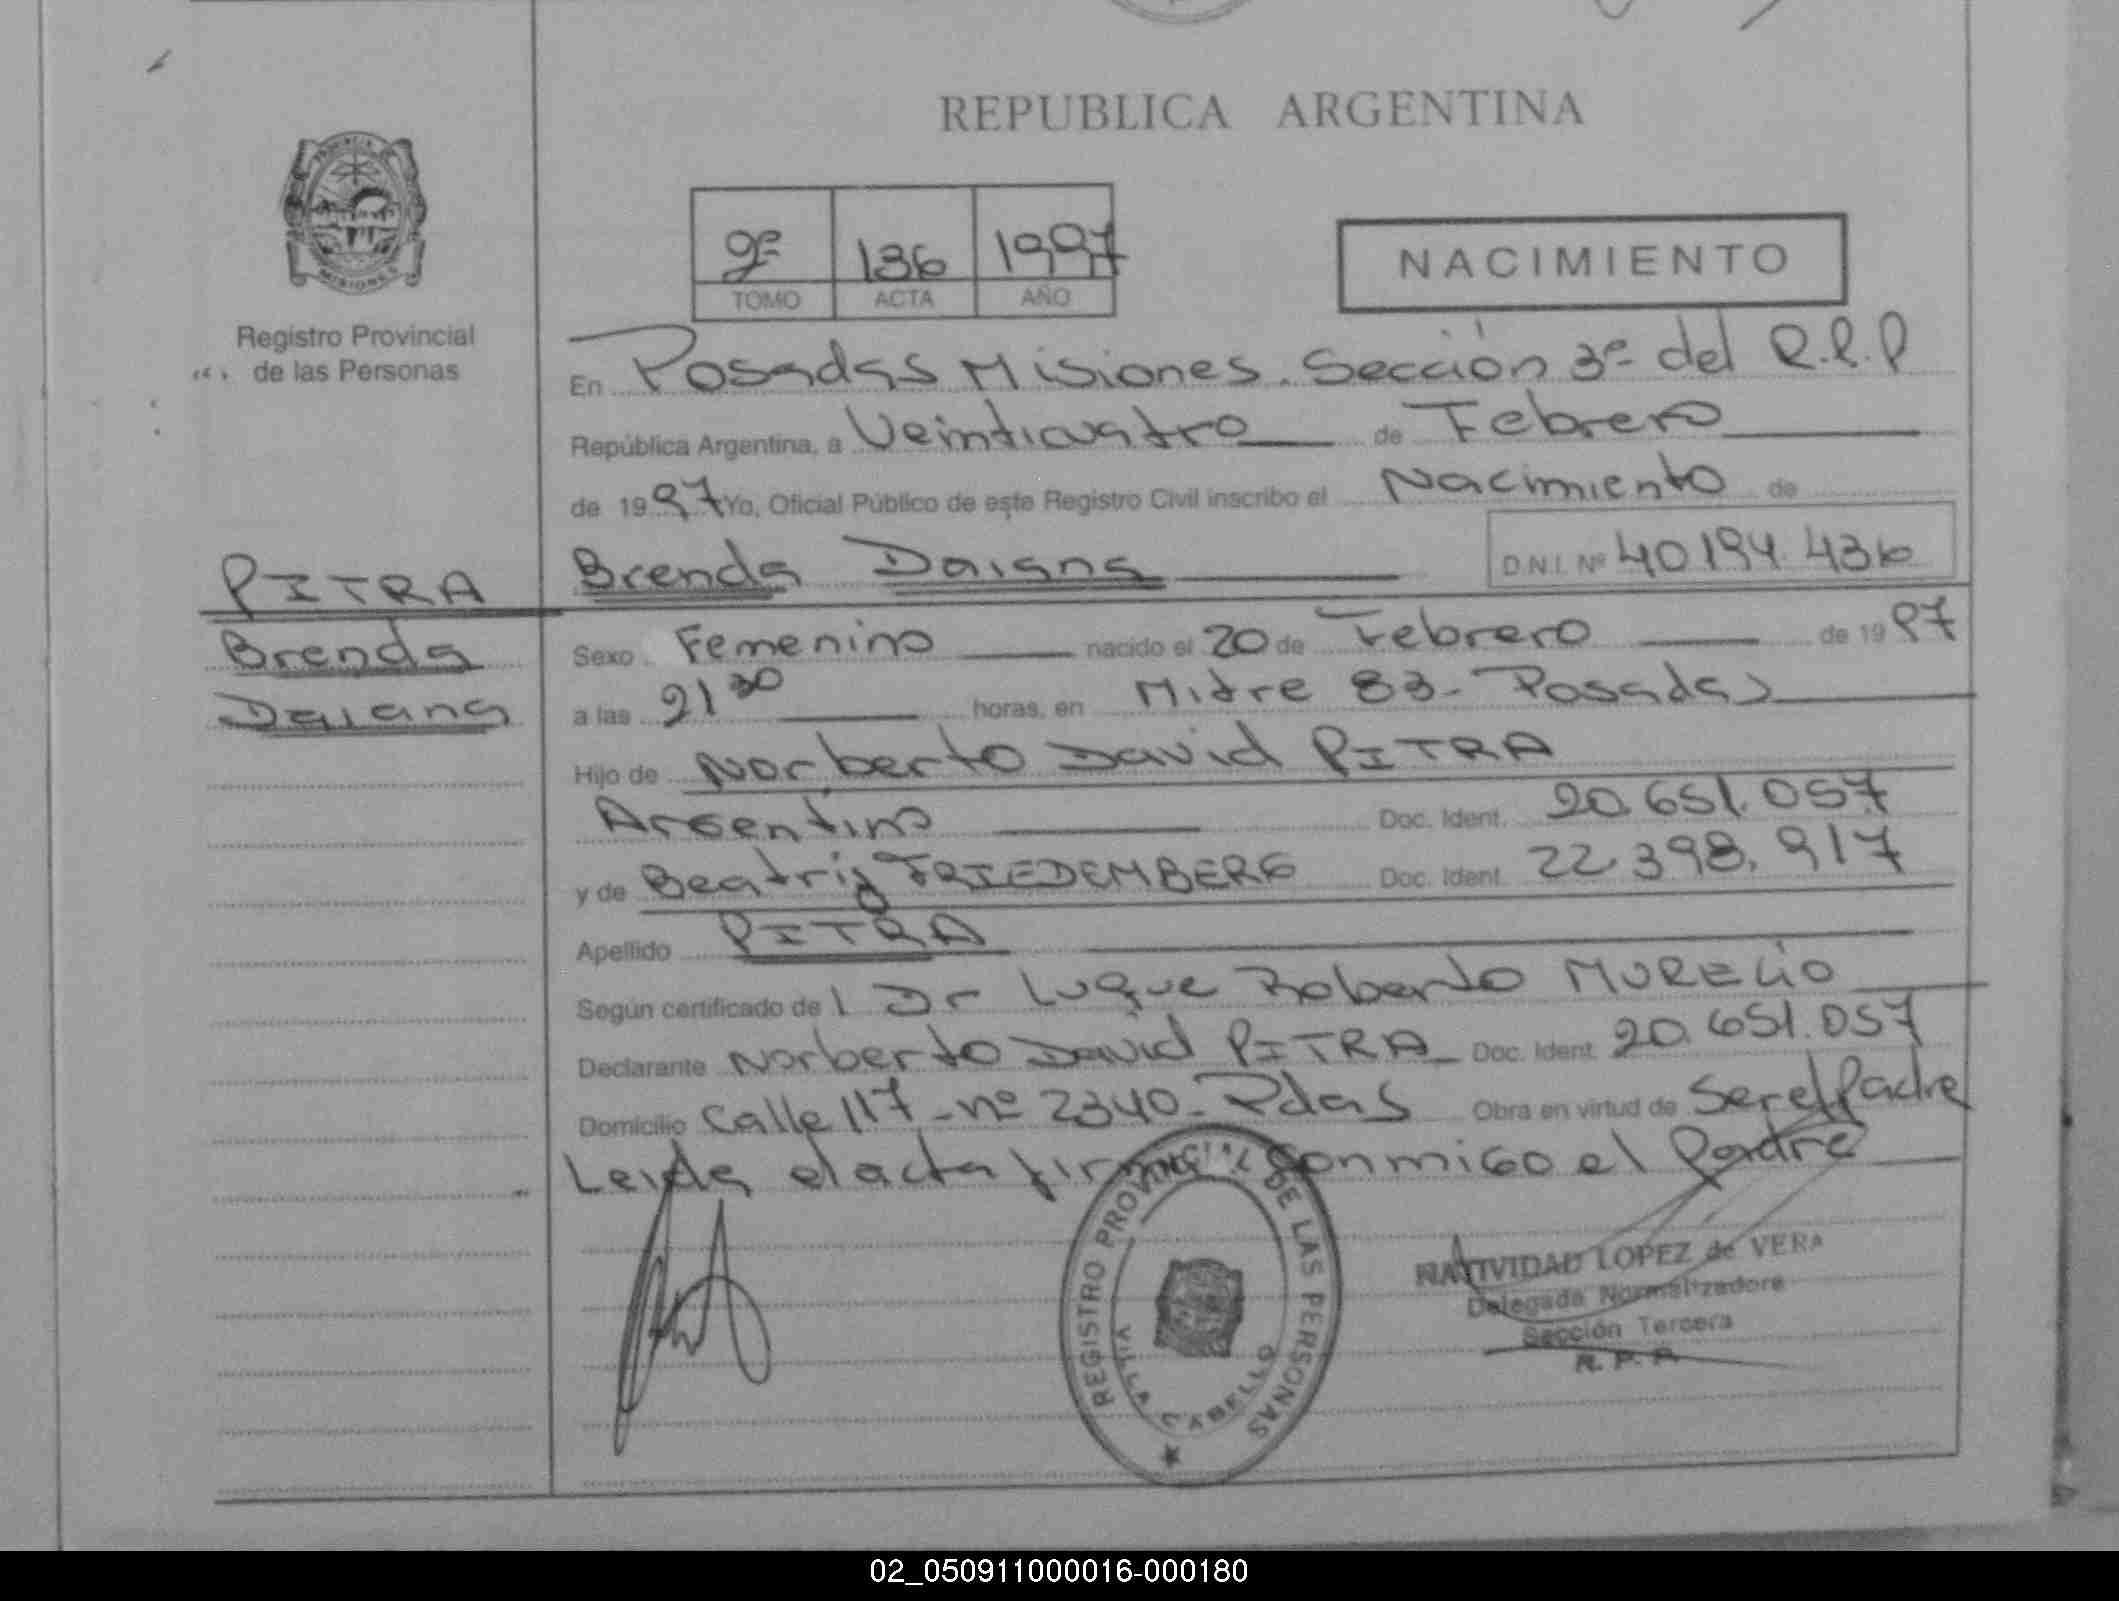 REPUBLICA ARGENTINA
Registro Provincial
de las Personas
2º 136 1997
TOMO ACTA AÑO
NACIMIENTO
En Posadas Misiones. Sección 3ª del R.P.P
República Argentina, a Veinticuatro de Febrero
de 1997 Yo, Oficial Público de este Registro Civil inscribo el Nacimiento de
Brenda Daiana D.N.I. Nº 40194.436
PITRA
Brenda
Daiana
Sexo Femenino nacido el 20 de Febrero de 1997
a las 21 30 horas, en Mitre 83 - Posadas
Hijo de Norberto David PITRA
Argentino Doc. Ident. 20.651.057
y de Beatriz FRIEDEMBERG Doc. Ident. 22.398.917
Apellido PITRA
Según certificado de l Dr Luque Roberto MORECIO
Declarante Norberto David PITRA - Doc. Ident. 20.651.057
Domicilio Calle 117 - nº 2340 - Pdas Obra en virtud de Ser el Padre
Leida el acta firma conmigo el Padre
REGISTRO PROVINCIAL DE LAS PERSONAS
VILLA CABELLO
NATIVIDAD LOPEZ de VERA
Delegada Normalizadora
Sección Tercera
R. P. P.
02_050911000016-000180